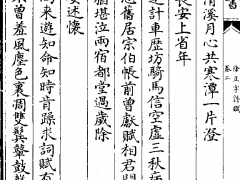 徐正字詩賦
卷二
清溪月心共寒潭一片澄
長安上省年
逐計車歷坊騎馬信空虛三秋病
思舊居宗伯帳前曾獻賦相君門
猶堪泣兩宿都堂過歲除
安述懷
尚來遊知命知時肯躁求詞賦有
曾羞風塵色裏凋雙鬢鼙鼓